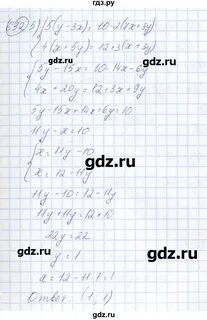 632 3) { 5(y-3x)=10-2(7x+3y)
4(x+5y)=12+3(x+3y)
{ 5y-15x=10-14x-6y
4x+20y=12+3x+9y
5y-15x+14x+6y=10
11y-x=10
{ x=11y-10
x=12-11y
11y-10=12-11y
11y+11y=12+10
22y=22
y=1
x=12-11·1=1
Ответ: (1; 1)